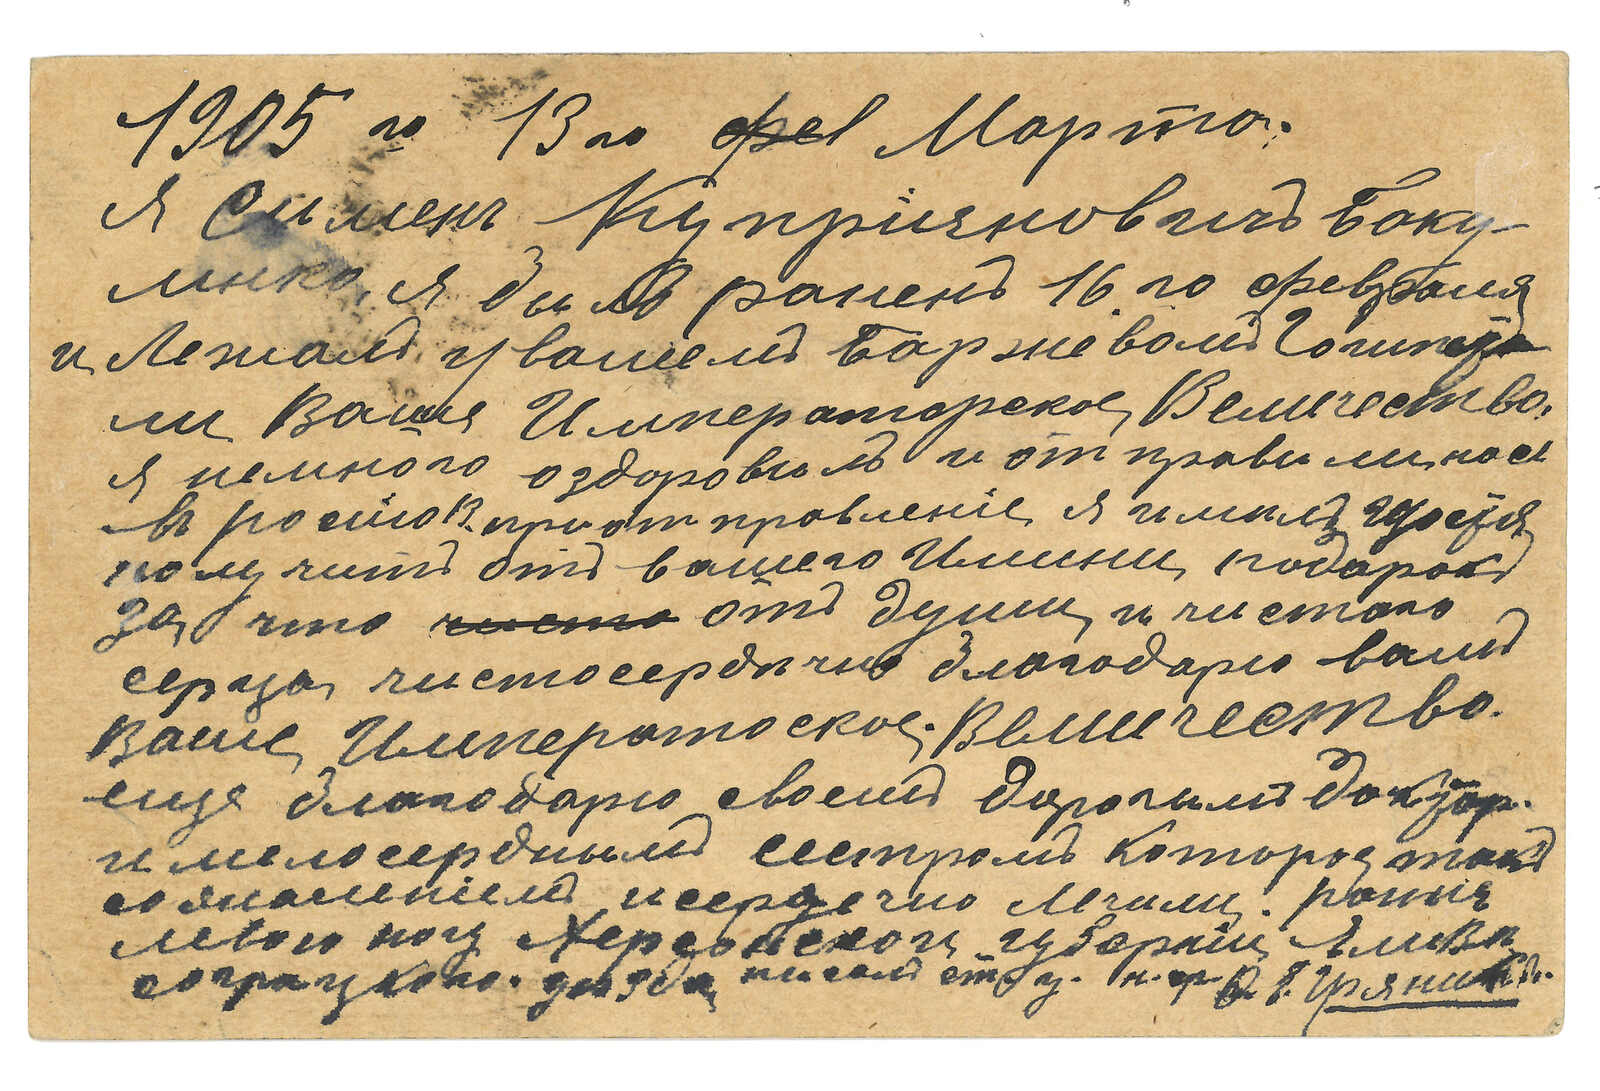 1905 го 13 го фев Марта.
Я Сименъ Купріяновичъ Баку
менко, я былъ раненъ 16 го февраля
и Лежалъ у вашемъ Баржевомъ Гошпита
ли Ваше Императорское Величество.
я немного оздоровилъ и отправили насъ
въ росіюю приотправленіе я имилъ щастя
получитъ отъ вашего Имини подарокъ
за что чисто отъ души и чистаго
серца чистосердично благодарю вамъ
Ваше Императоское Величество.
еще благодарю своемъ дорогимъ доктор.
и мелосерднымъ сестрамъ которое такъ
сознаніемъ и сердечно лечили. раных
левою ногу Херсонской губерніи Яливи
соградцкого. уизда писалъ ст. у. н. ср.